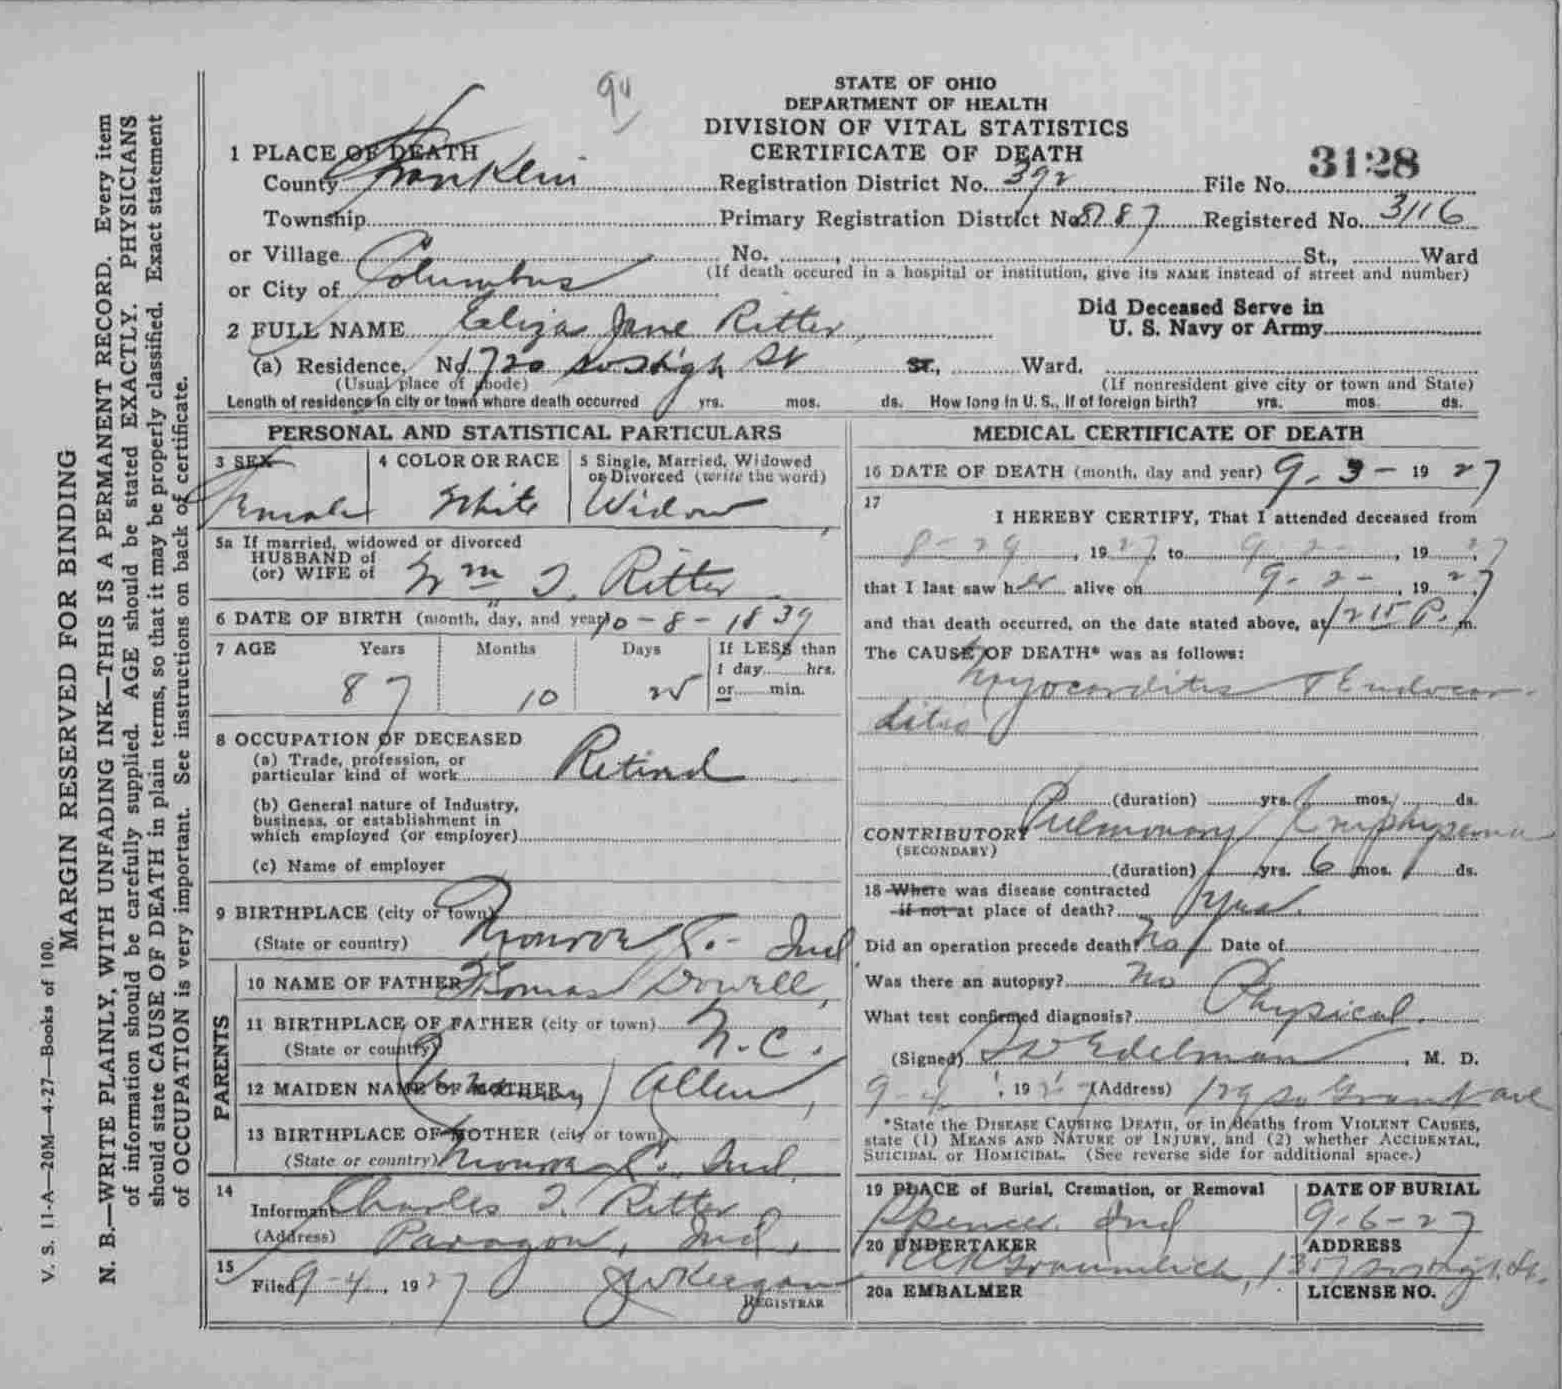 94
STATE OF OHIO
DEPARTMENT OF HEALTH
DIVISION OF VITAL STATISTICS
CERTIFICATE OF DEATH
1 PLACE OF DEATH
3128
County Franklin Registration District No. 392 File No.
Township Primary Registration District No. 8187 Registered No. 3116
or Village No. St., Ward
(If death occured in a hospital or institution, give its NAME instead of street and number)
or City of Columbus
Did Deceased Serve in
U. S. Navy or Army
2 FULL NAME Eliza Jane Ritter
(a) Residence, No. 1720 So High St St., Ward.
(Usual place of abode) (If nonresident give city or town and State)
Length of residence in city or town where death occurred yrs. mos. ds. How long in U. S., if of foreign birth? yrs. mos. ds.
PERSONAL AND STATISTICAL PARTICULARS
3 SEX Female
4 COLOR OR RACE White
5 Single, Married, Widowed
or Divorced (write the word)
Widow
5a If married, widowed or divorced
HUSBAND of
(or) WIFE of Wm T. Ritter
6 DATE OF BIRTH (month, day, and year) 10-8-1839
7 AGE Years Months Days If LESS than
1 day hrs.
or min.
87 10 25
8 OCCUPATION OF DECEASED
(a) Trade, profession, or
particular kind of work Retired
(b) General nature of Industry,
business, or establishment in
which employed (or employer)
(c) Name of employer
9 BIRTHPLACE (city or town)
(State or country) Monroe Co. - Ind
PARENTS
10 NAME OF FATHER Thomas Dowell
11 BIRTHPLACE OF FATHER (city or town)
(State or country) N.C.
12 MAIDEN NAME OF MOTHER Allen
13 BIRTHPLACE OF MOTHER (city or town)
(State or country) Monroe Co., Ind.
14
Informant Charles T. Ritter
(Address) Paragon, Ind.
15
Filed 9-4, 1927 J W Keegan
REGISTRAR
MEDICAL CERTIFICATE OF DEATH
16 DATE OF DEATH (month, day and year) 9-3-1927
17
I HEREBY CERTIFY, That I attended deceased from
8-29, 1927, to 9-2-, 1927
that I last saw her alive on 9-2-, 1927
and that death occurred, on the date stated above, at 1215 P. m.
The CAUSE OF DEATH* was as follows:
Myocarditis & Endocar-
ditis
(duration) yrs. mos. ds.
CONTRIBUTORY Pulmonary Emphysema
(SECONDARY)
(duration) yrs. 6 mos. ds.
18 Where was disease contracted
if not at place of death? Yes.
Did an operation precede death? No Date of
Was there an autopsy? No
What test confirmed diagnosis? Physical.
(Signed) Edelman, M. D.
9-4, 1927 (Address) 129 So Grant ave
*State the DISEASE CAUSING DEATH, or in deaths from VIOLENT CAUSES,
state (1) MEANS AND NATURE OF INJURY, and (2) whether ACCIDENTAL,
SUICIDAL or HOMICIDAL. (See reverse side for additional space.)
19 PLACE of Burial, Cremation, or Removal
Spencer, Ind
DATE OF BURIAL
9-6-27
20 UNDERTAKER
ADDRESS
1357 So High St.
20a EMBALMER
LICENSE NO.
V. S. 11-A—20M—4-27—Books of 100.
MARGIN RESERVED FOR BINDING
N. B.—WRITE PLAINLY, WITH UNFADING INK—THIS IS A PERMANENT RECORD. Every item
of information should be carefully supplied. AGE should be stated EXACTLY. PHYSICIANS
should state CAUSE OF DEATH in plain terms, so that it may be properly classified. Exact statement
of OCCUPATION is very important. See instructions on back of certificate.